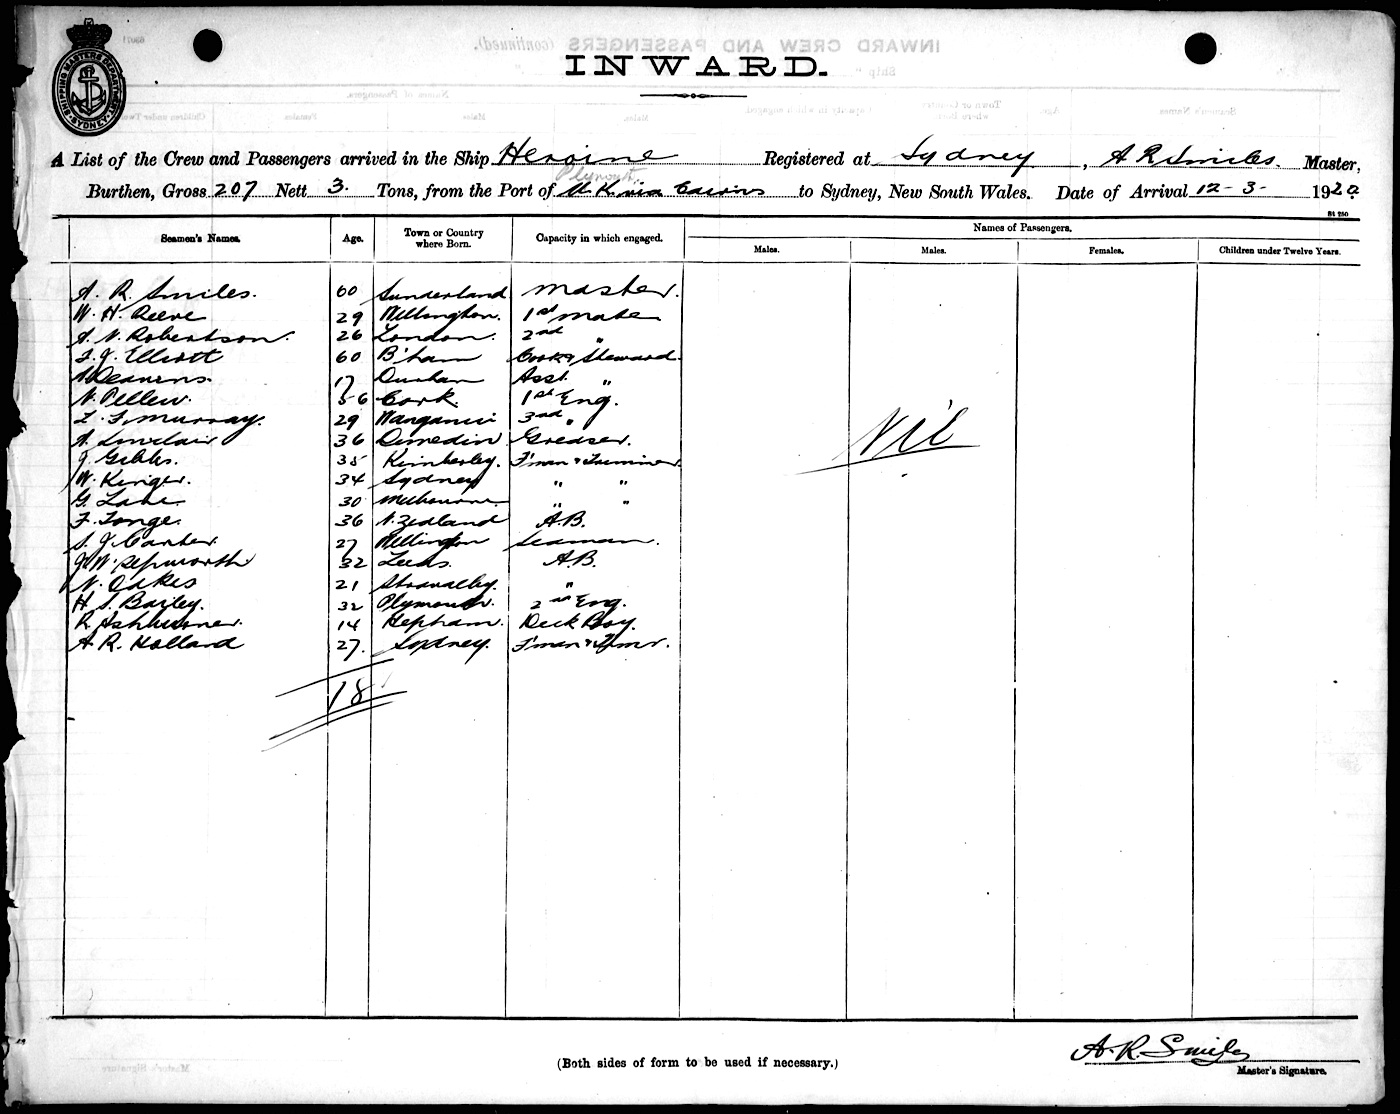 INWARD.
SHIPPING MASTERS DEPARTMENT SYDNEY
A List of the Crew and Passengers arrived in the Ship Heroine Registered at Sydney, A R Smiles. Master,
Plymouth
Burthen, Gross 207 Nett 3. Tons, from the Port of U.K. via Cairns to Sydney, New South Wales. Date of Arrival 12-3- 1920
St 250
Seamen's Names. Age. Town or Country where Born. Capacity in which engaged. Names of Passengers.
Males. Males. Females. Children under Twelve Years.
A. R. Smiles. 60 Sunderland Master.
W. H. Reeve 29 Wellington. 1st Mate
A. N. Robertson. 26 London. 2nd "
F. J. Elliott 60 B'ham Cook & Steward.
17 Durham Asst. "
N. Pellew. 56 Cork. 1st Eng.
L. F. Murray. 29 Wanganui 3rd "
A. Sinclair 36 Dunedin Greaser.
J. Gibbs. 35 Kimberley. F'man & Trimmer.
W. 34 Sydney " "
G. Lane 30 Melbourne " "
F. Tonge. 36 N. Zealand A.B.
S. J. Carter. 27 Wellington Seaman.
J. W. Hepworth 32 Leeds. A.B.
N. Oakes 21 "
H. S. Bailey. 32 Plymouth. 2nd Eng.
R. Ashburner. 14 Hepham. Deck Boy.
A. R. Holland 27. Sydney. F'man & Trimr.
Nil
18
(Both sides of form to be used if necessary.)
A. R. Smiles
Master's Signature.